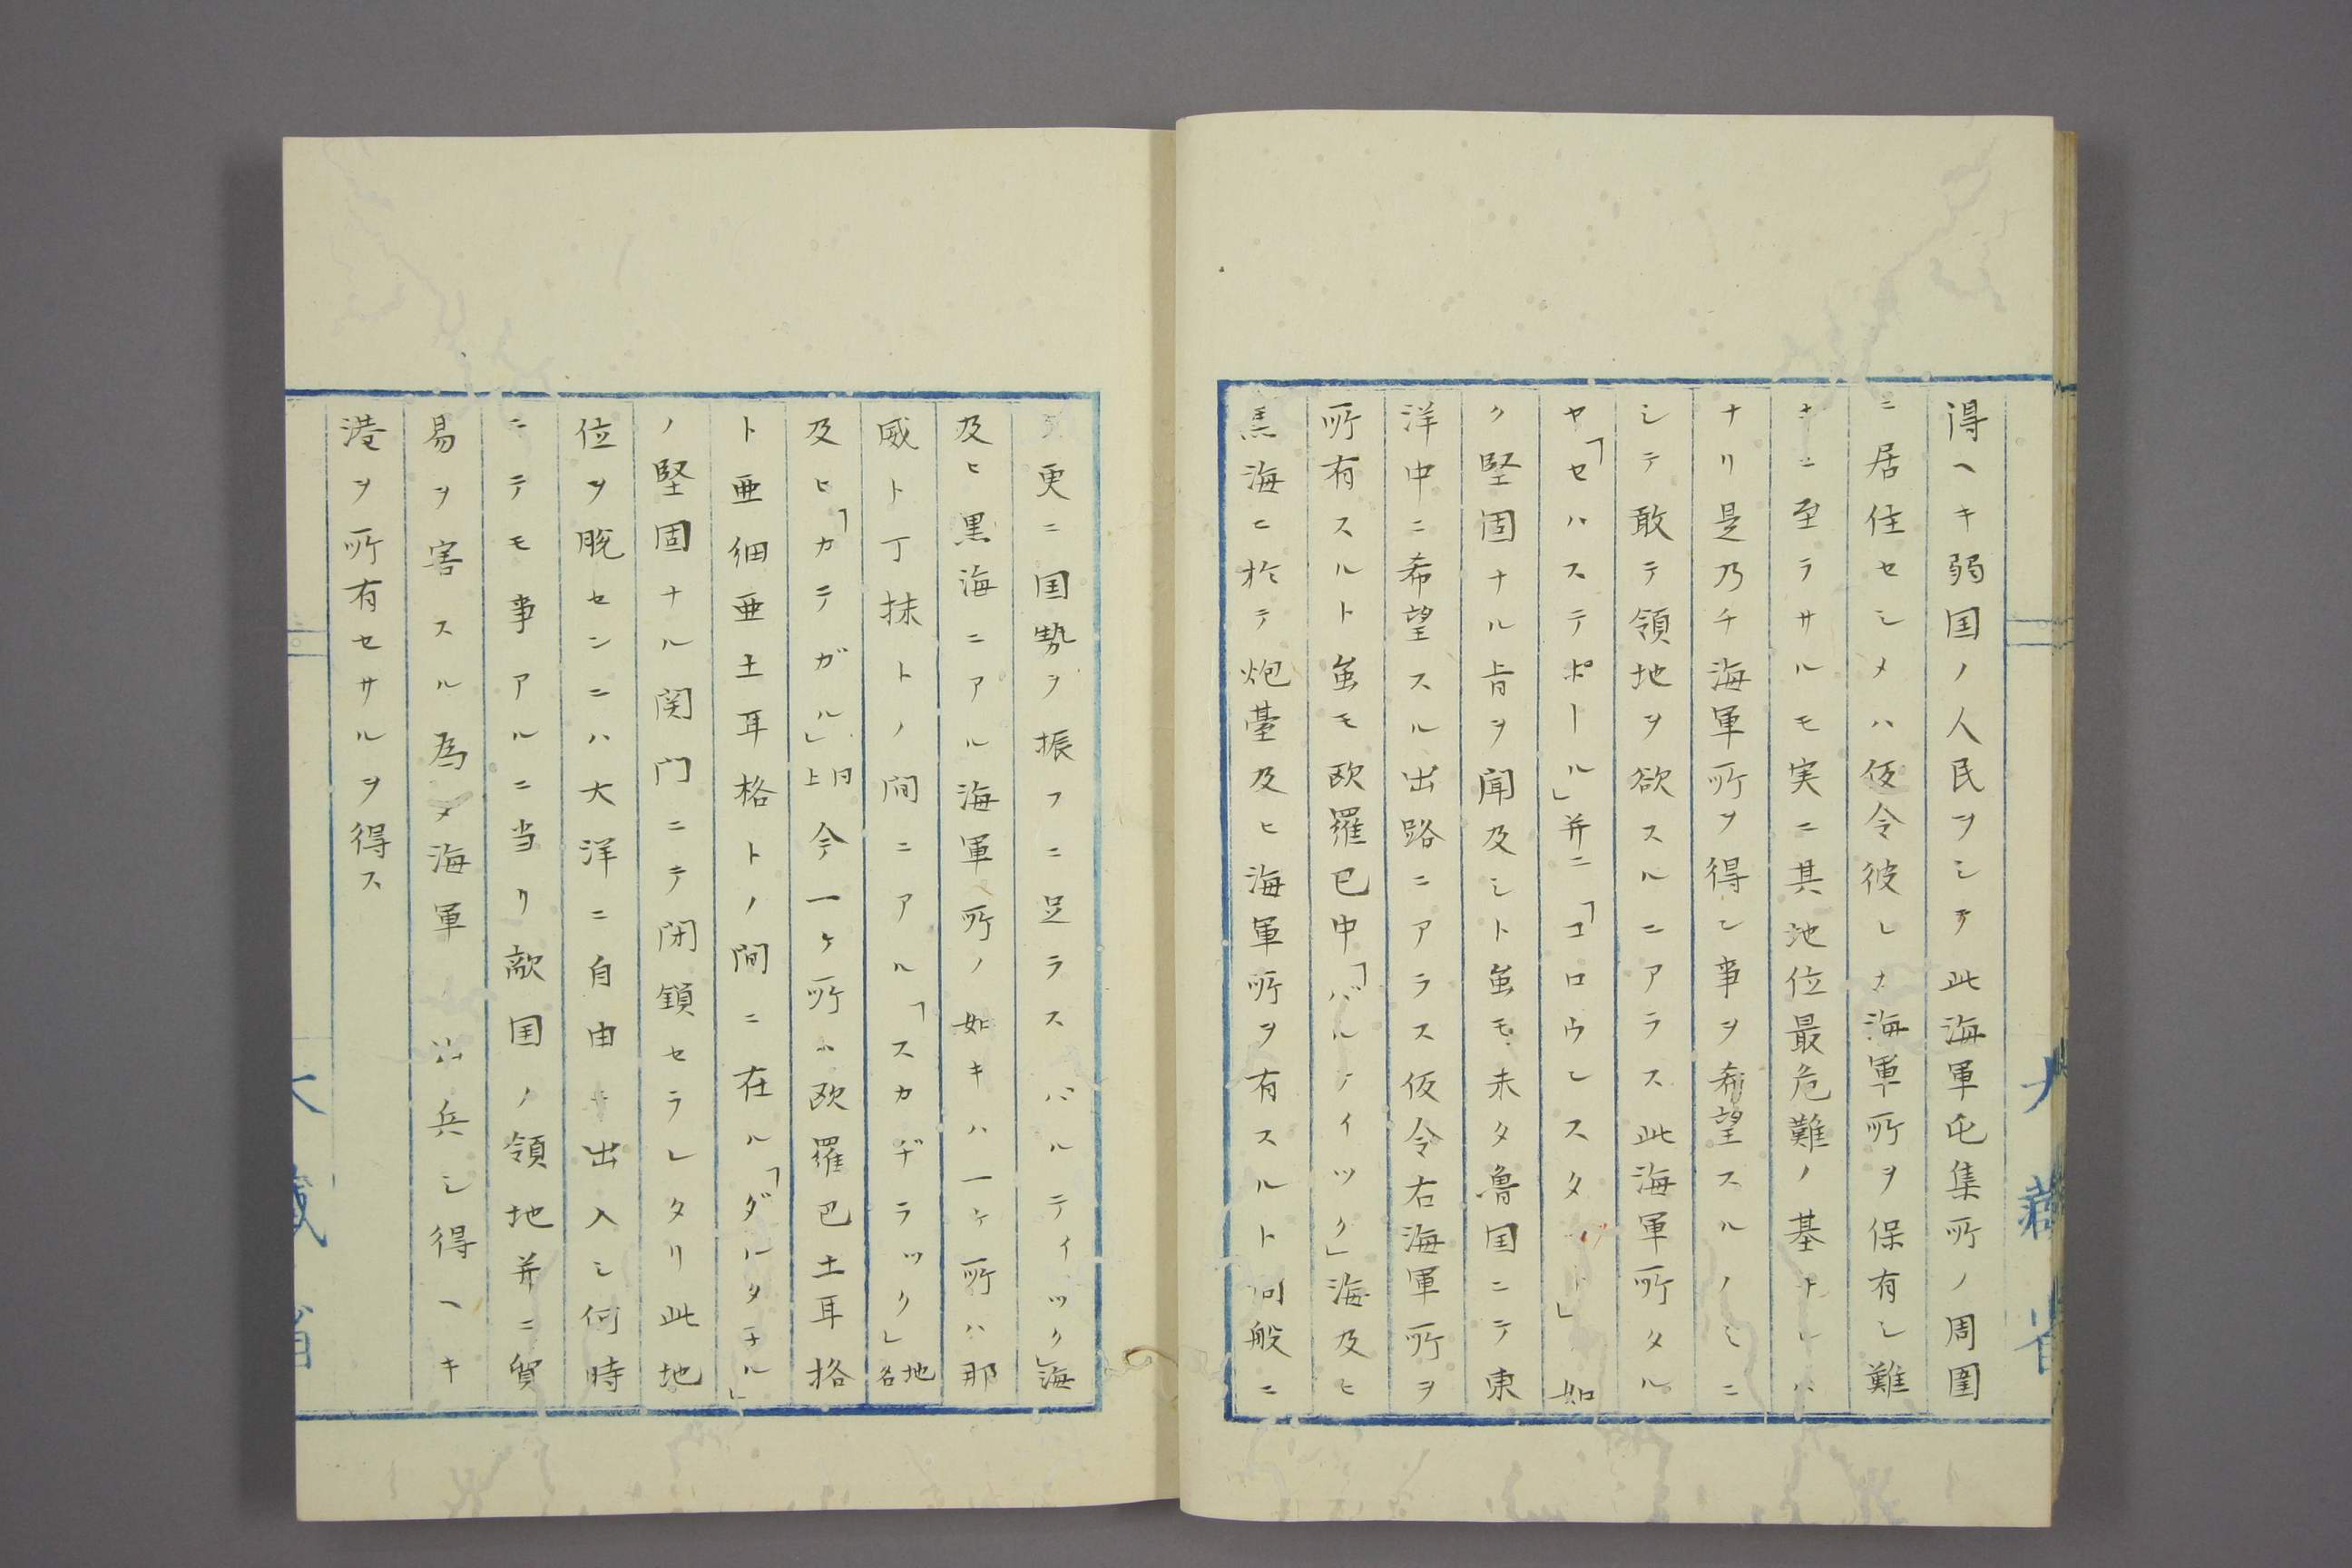 得ヘキ弱国ノ人民ヲシテ此海軍屯集所ノ周圍
ニ居住セシメハ仮令彼レナ海軍所ヲ保有シ難
キニ至ラサルモ実ニ其地位最危難ノ基ナレハ
ナリ是乃チ海軍所ヲ得シ事ヲ希望スルノミニ
シテ敢テ領地ヲ欲スルニアラス此海軍所タル
ヤ「セハステポール」并ニ「コロウンスタット」如
ク堅固ナル旨ヲ聞及シト虽モ未タ魯国ニテ東
洋中ニ希望スル出路ニアラス仮令右海軍所ヲ
所有スルト虽モ欧羅巴中「バルテイック」海及ヒ
黒海ニ於テ炮臺及ヒ海軍所ヲ有スルト同般ニ
大藏省
更ニ国勢ヲ振フニ足ラスバルテイック」海
及ヒ黒海ニアル海軍所ノ如キハ一ケ所ハ那
威ト丁抹トノ間ニアル「スカヂラック」地名
及ヒ「カテガル」同上今一ケ所ハ欧羅巴土耳格
ト亜細亜土耳格トノ間ニ在ル「ダルタチル」
ノ堅固ナル関門ニテ閉鎖セラレタリ此地
位ヲ脱センニハ大洋ニ自由ニ出入シ何時
ニテモ事アルニ当リ敵国ノ領地并ニ貿
易ヲ害スル為メ海軍 出兵シ得ヘキ
港ヲ所有セサルヲ得ス
大藏省